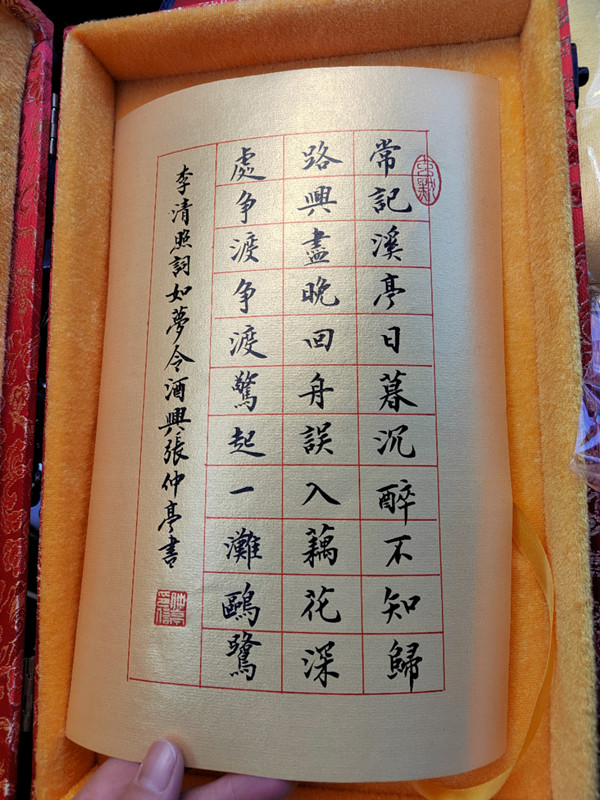 常記溪亭日暮沉醉不知歸
路興盡晚回舟誤入藕花深
處争渡争渡驚起一灘鷗鷺
李清照詞如夢令酒興張仲亭書